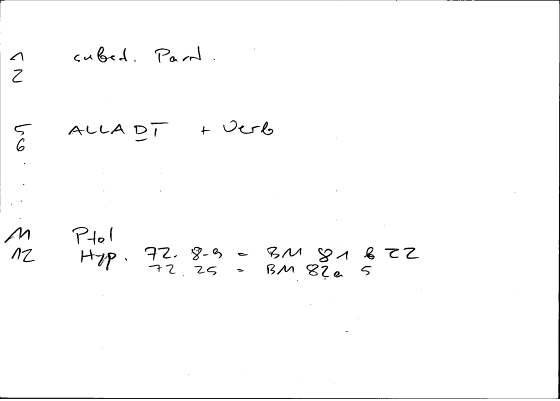 1 subed. Pand.
2
5 ALLADT + Verb
6
.
.
.
11 Ptol
12 Hyp. 72. 8-9 = BM 81 b 22
72. 25 = BM 82a 5